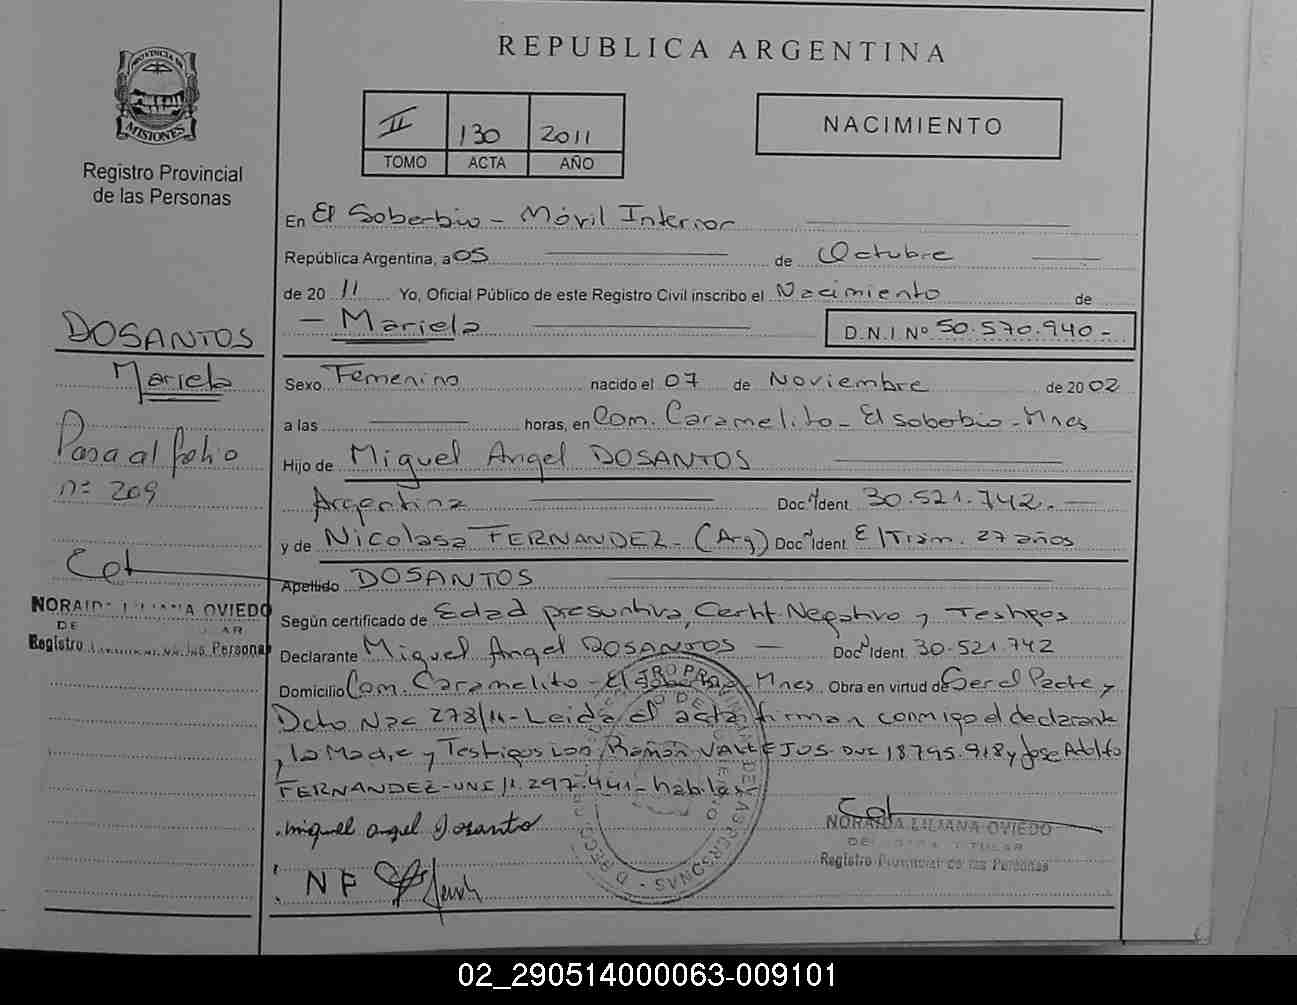 REPUBLICA ARGENTINA
PROVINCIA DE MISIONES
Registro Provincial
de las Personas
II 130 2011
TOMO ACTA AÑO
NACIMIENTO
En El Soberbio - Móvil Interior
República Argentina, a 05 de Octubre
de 2011 Yo, Oficial Público de este Registro Civil inscribo el Nacimiento de
- Mariela D.N.I Nº 50.570.940-
DOSANTOS
Mariela
Pasa al folio
nº 209
NORAIDA LILIANA OVIEDO
Sexo Femenino nacido el 07 de Noviembre de 2002
a las horas, en Com. Caramelito - El soberbio - Mnes
Hijo de Miguel Angel DOSANTOS
Argentina Doc. Ident. 30.521.742.-
y de Nicolasa FERNANDEZ - (Arg) Doc. Ident. E/Trám. 27 años
Apellido DOSANTOS
Según certificado de Edad presuntiva, Certif. Negativo y Testigos
Declarante Miguel Angel DOSANTOS - Doc. Ident. 30.521.742
Domicilio Com. Caramelito - El Mnes. Obra en virtud de Ser el Padre y
Dcto Nac 278/11 - Leida el acta firman conmigo el declarante
, la Madre y Testigos Ramón VALLEJOS 18.795.918 y Jose Adolfo
FERNANDEZ - 11.297.441 - habiles
miguel angel Dosanto
N F
NORAIDA LILIANA OVIEDO
DELEGADA TITULAR
Registro Provincial de las Personas
02_290514000063-009101